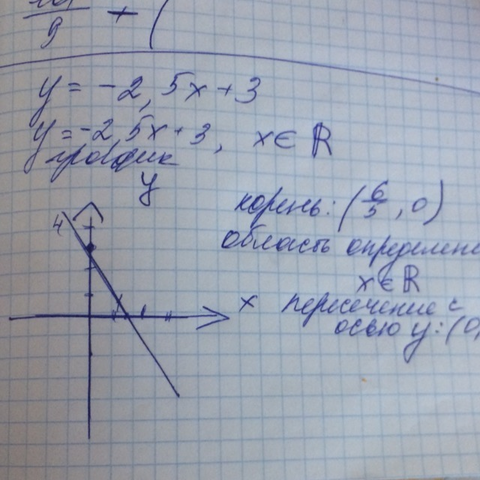 9 + (
y = -2,5x+3
y = -2,5x+3, x ∈ ℝ
график
y
4
x
корень: (6/5, 0)
область определен
x ∈ ℝ
пересечение с
осью y: (0,